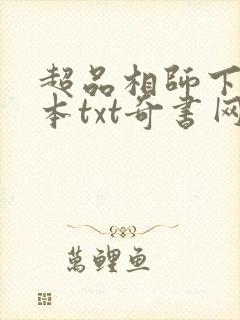 超品相師下
本txt奇書网
萬鲤鱼